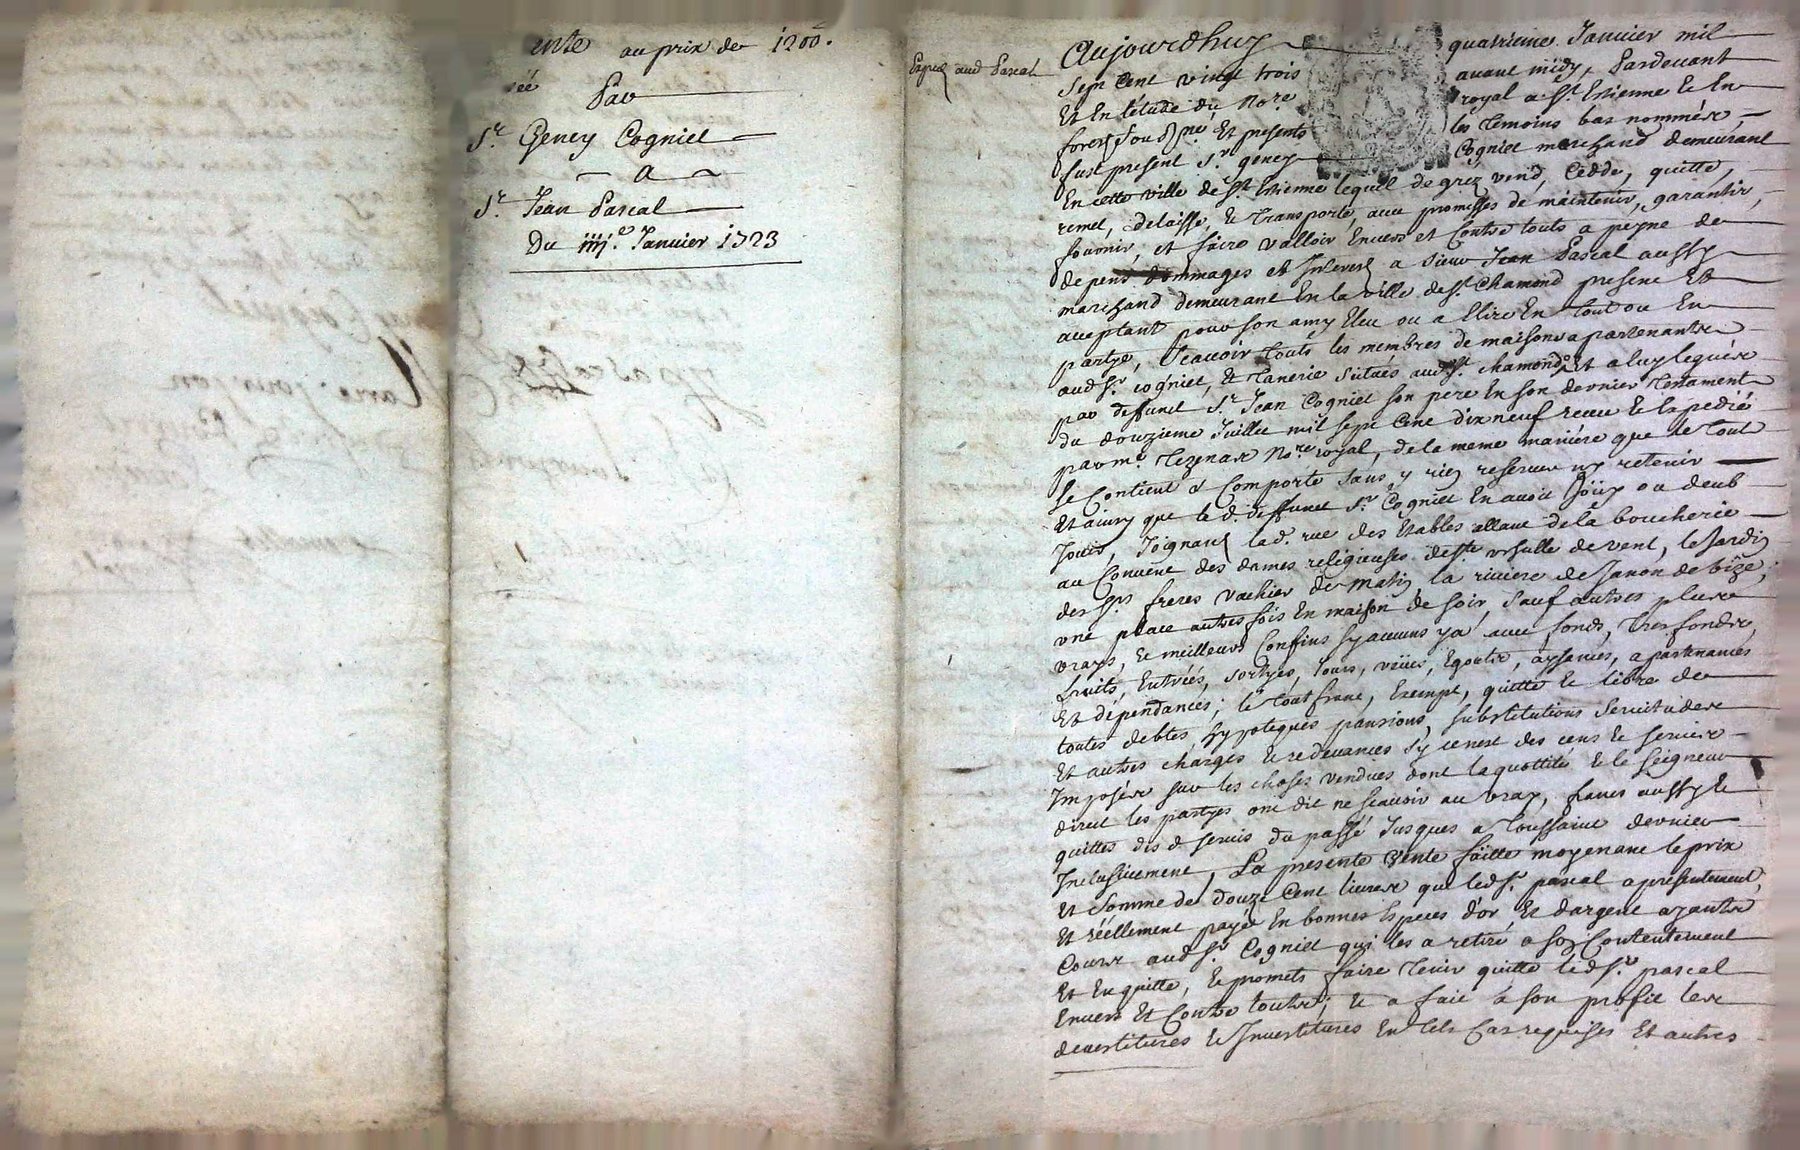 ente au prix de 1200#.
Par
Sr. Geney Cogniet
A
Sr. Jean Pascal
Du iiij.e Janvier 1723
Exped aud Pascal
Aujourdhuy quatrieme Janvier mil
sept cent vingt trois avant midy, Pardevant
Et En letude du No.re royal a St. Estienne Et En
forest sousné Et presents les temoins bas nommés
fust present Sr. geney Cogniet marchand demeurant
En cette ville de St. Estienne lequel de grez vend, Cedde, quitte,
remet, delaisse, Et transporte, avec promesses de maintenir, garantir,
fournir, et faire valloir Envers et Contre touts a peyne de
depens dommages et Interest a sieur Jean Pascal aussy
marchand demeurant En la ville de St. Chamond present Et
acceptant pour son amy Eleu ou a Elire En tout ou En
partye, Scavoir touts les membres de maisons apartenants
aud Sr. cogniet, & Tanerie scitués aud St. chamond, Et a luy legués
par deffunct Sr. Jean Cogniet son pere En son dernier testament
du douzieme Juillet mil sept Cent dix neuf receu Et Expedié
par me. Tezenas No.re royal, de la meme maniére que le tout
se Contient & Comporte sans y rien reserver ny retenir
Et ainsy que led. deffunct Sr. Cogniet En avoit Joüy ou deub
Jouir, Joignant lad. rue des Etables allant de la boucherie
au Convent des dames religieuses de Ste ursulle de vent, le Jardin
des Srs freres vachier de matin la riviere de Janon de bize,
une place autresfois En maison de soir, sauf autres plus
vrays, Et meilleurs Confins sy aucuns y a avec fonds, tresfonds,
fruits, Entrées, sortyes, Jours, veües, Egouts, aysances, apartenances
Et dépendances; le tout franc, Exempt, quitte Et libre de
toutes debtes hypoteques pansions, substitutions servitudes
Et autres charges Et redevances sy cenest des cens Et servis
Imposés sur les choses vendues dont la quottité Et le seigneur
direct les partyes ont dit ne scavoir au vray, francs aussy Et
quittes des d servis du passé Jusques a toussaint dernier
Inclusivement, La presente vente faitte moyenant le prix
Et somme de douze Cent livres que led Sr. pascal a presentement
Et réellement payée En bonnes Especes d'or Et dargent ayants
Cours aud Sr. Cogniet qui les a retiré a son Contentement
Et En quitte, Et promets faire tenir quitte led Sr. pascal
Envers Et Contre touts; Et a fait a son profit les
devestitures Et Investitures En tels Cas requises Et autres